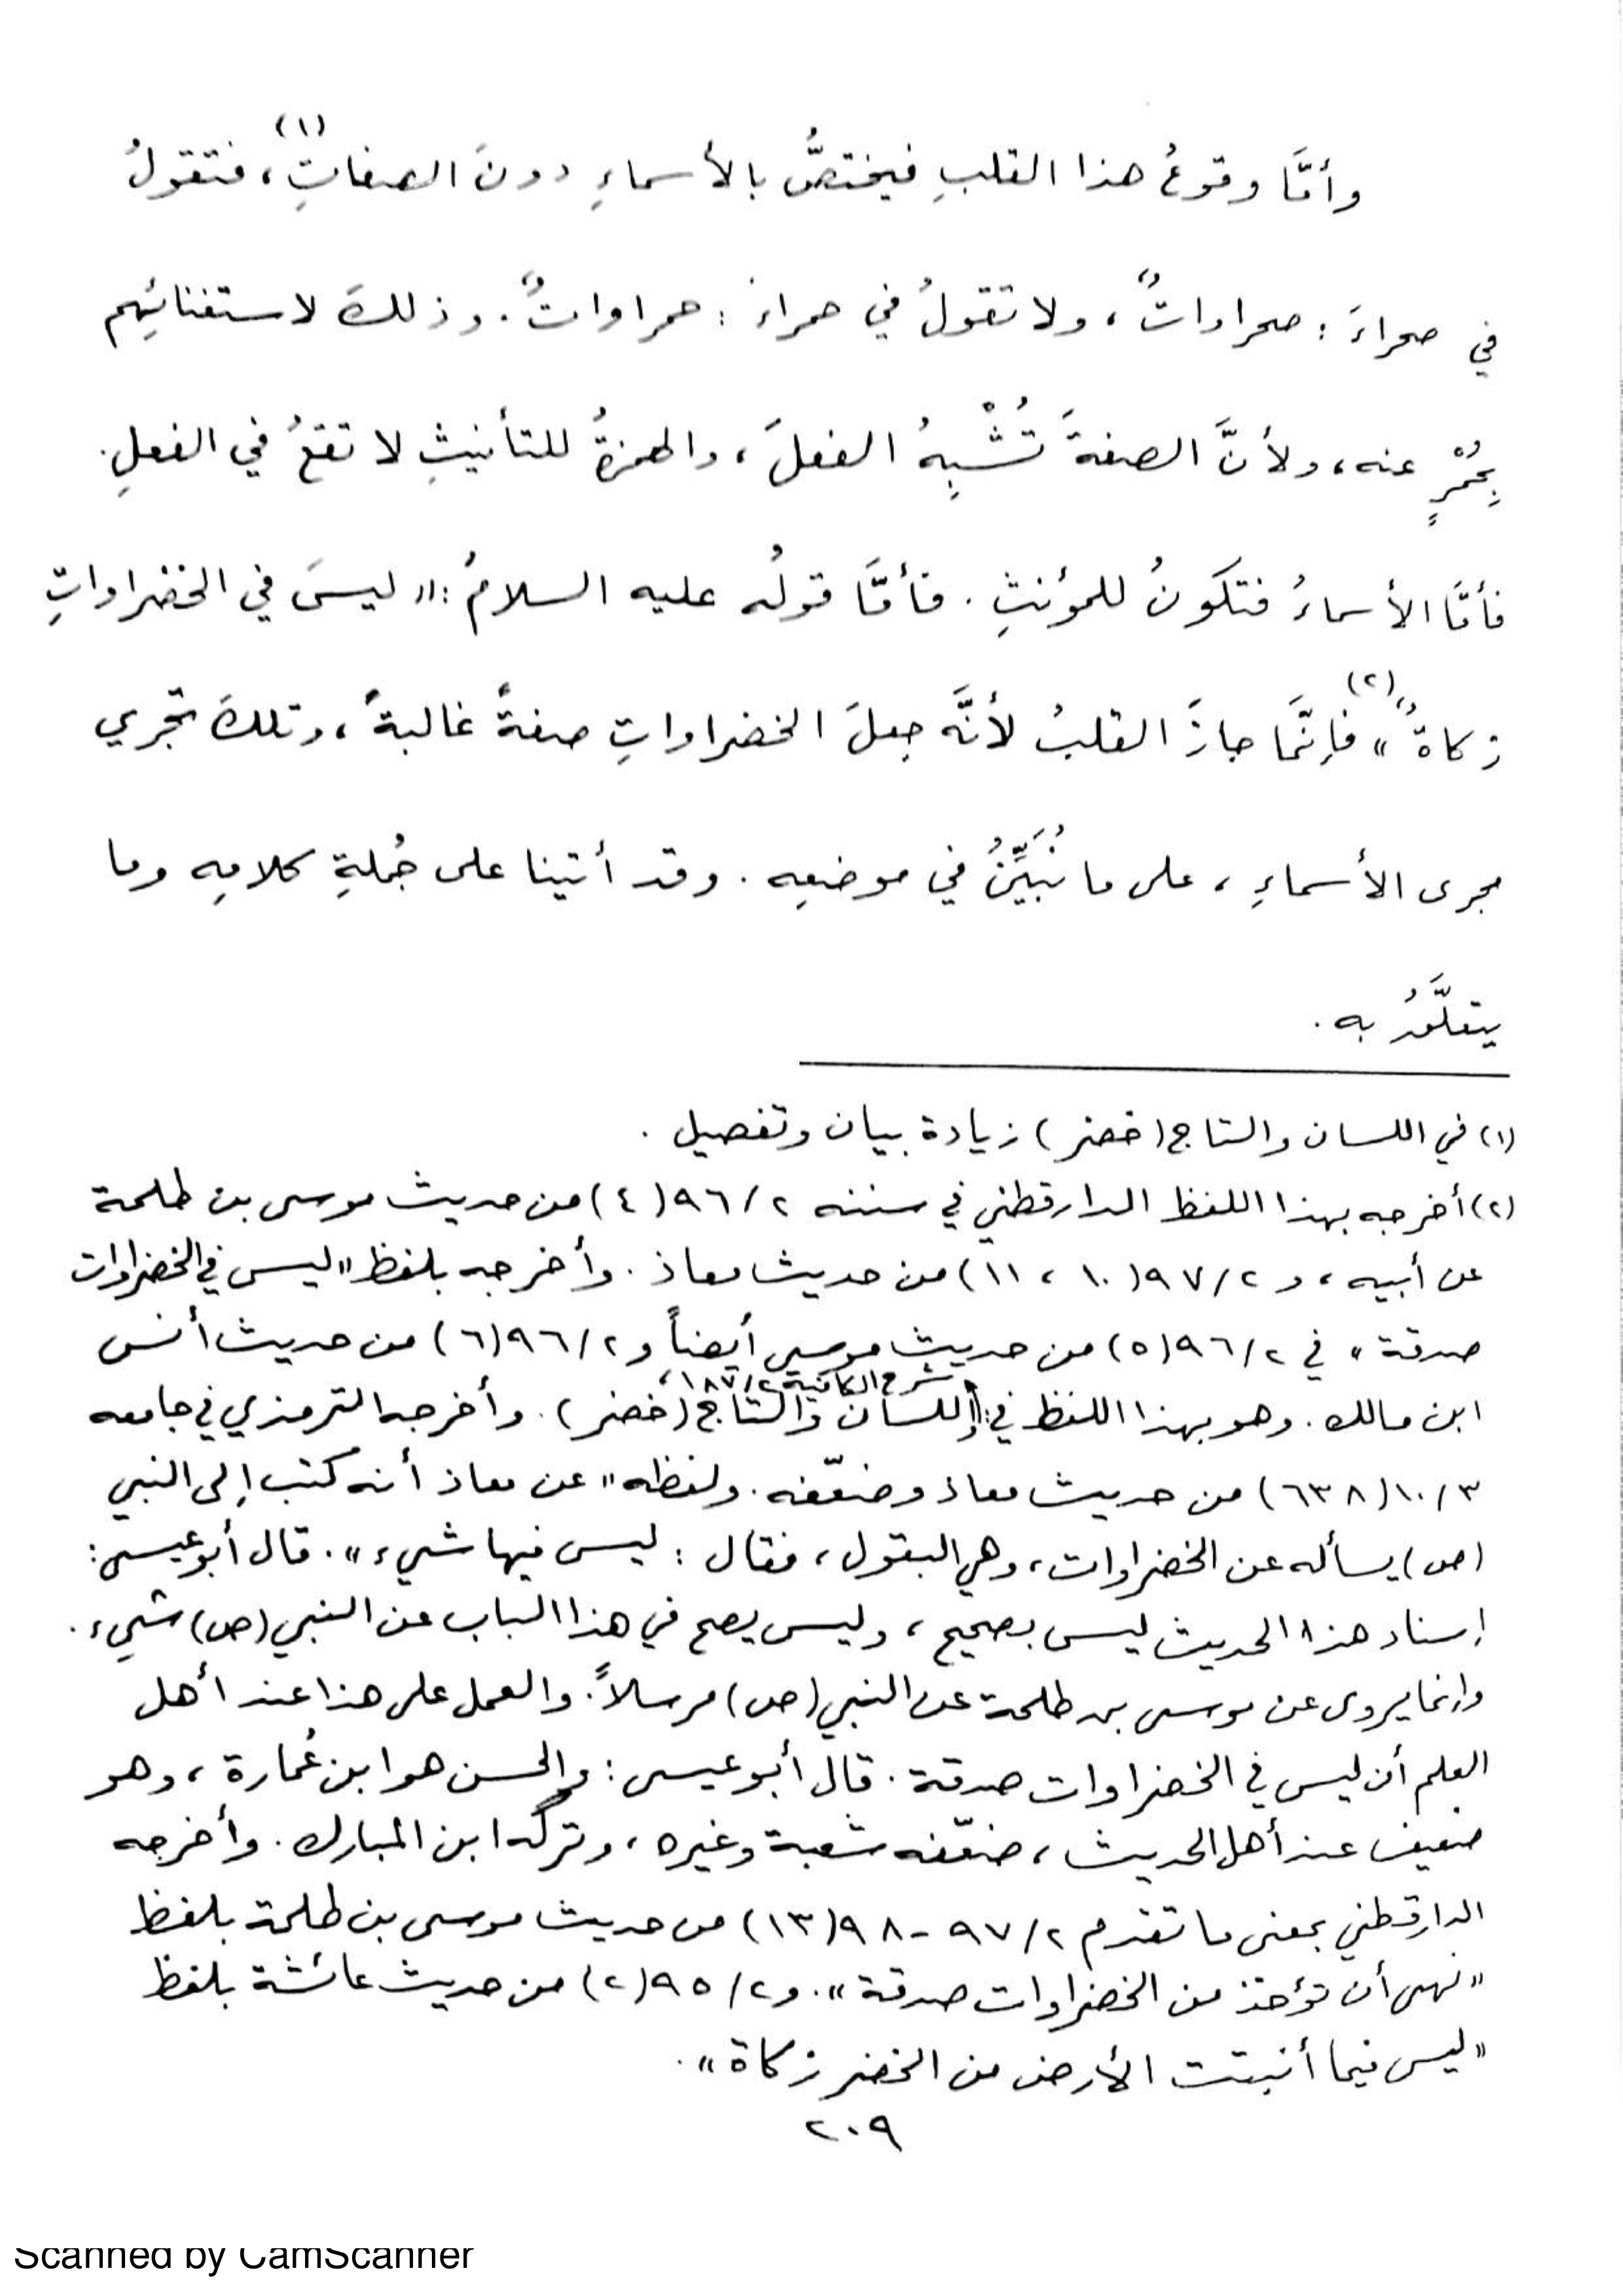 وأمَّا وقوعُ هذا القلبِ فيختصُّ بالأسماءِ دونَ الصفاتِ(١)، فتقولُ
في صحراءَ : صحراواتٌ، ولا تقولُ في حمراءَ : حمراواتٌ. وذلكَ لاستغنائِهم
بِحُمْرٍ عنه، ولأنَّ الصفةَ تُشْبِهُ الفعلَ، والهمزةُ للتأنيثِ لا تقعُ في الفعلِ.
فأمَّا الأسماءُ فتكونُ للمؤنثِ. فأمَّا قولُه عليه السلامُ: "ليسَ في الخضراواتِ
زكاةٌ"(٢) فإنَّما جازَ القلبُ لأنَّه جعلَ الخضراواتِ صفةً غالبةً، وتلكَ تجري
مجرى الأسماءِ، على ما نُبَيِّنُ في موضعِه. وقد أتينا على جُملةِ كلامِه وما
يتعلَّقُ به.
(١) في اللسان والتاج (خضر) زيادة بيان وتفصيل.
(٢) أخرجه بهذا اللفظ الدارقطني في سننه ٩٦/٢ (٤) من حديث موسى بن طلحة
عن أبيه، و ٩٧/٢ (١٠، ١١) من حديث معاذ. وأخرجه بلفظ "ليس في الخضراوات
صدقة" في ٩٦/٢ (٥) من حديث موسى أيضاً و ٩٦/٢ (٦) من حديث أنس
ابن مالك. وهو بهذا اللفظ في: شرح الكافية ١٨٧/٢، واللسان والتاج (خضر). وأخرجه الترمذي في جامعه
١٠/٣ (٦٣٨) من حديث معاذ وضعّفه. ولفظه "عن معاذ أنه كتب إلى النبي
(ص) يسأله عن الخضراوات، وهي البقول، فقال : ليس فيها شيء". قال أبو عيسى:
إسناد هذا الحديث ليس بصحيح، وليس يصح في هذا الباب عن النبي (ص) شيء.
وإنما يروى عن موسى بن طلحة عن النبي (ص) مرسلاً. والعمل على هذا عند أهل
العلم أن ليس في الخضراوات صدقة. قال أبو عيسى: والحسن هو ابن عُمارة، وهو
ضعيف عند أهل الحديث، ضعّفه شعبة وغيره، وتركه ابن المبارك. وأخرجه
الدارقطني بمعنى ما تقدم ٩٧/٢ - ٩٨ (١٣) من حديث موسى بن طلحة بلفظ
"نهى أن تؤخذ من الخضراوات صدقة". و ٩٥/٢ (٢) من حديث عائشة بلفظ
"ليس فيما أنبتت الأرض من الخضر زكاة".
٢٠٩
Scanned by CamScanner